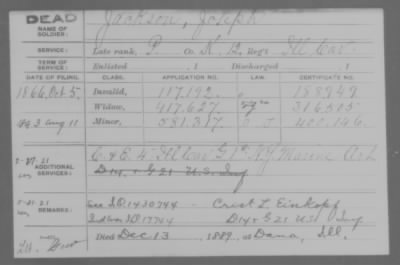 DEAD
NAME OF SOLDIER: Jackson, Joseph
SERVICE: Late rank, P. Co. K, 12, Reg't Ill Cav.
TERM OF SERVICE: Enlisted , 1 Discharged , 1
DATE OF FILING. CLASS. APPLICATION NO. LAW. CERTIFICATE NO.
1866, Oct 5. Invalid, 117.192. 188949
Widow, 417.627. 316.505
Aug 11 Minor, 581.317 400.146.
ADDITIONAL SERVICES: C & E 4 Ill Cav G 1st N.Y. Marine Art
D 14, & G 21 U.S. Inf
REMARKS: See SO 1430744 - Crist L. Einkopf
17744 D 14 & G 21 US Inf
Died Dec. 13, 1889, at Dana, Ill.